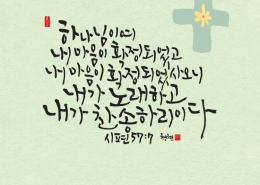 하나님이여
내 마음이 확정되었고
내 마음이 확정되었사오니
내가 노래하고
내가 찬송하리이다
시편 57:7